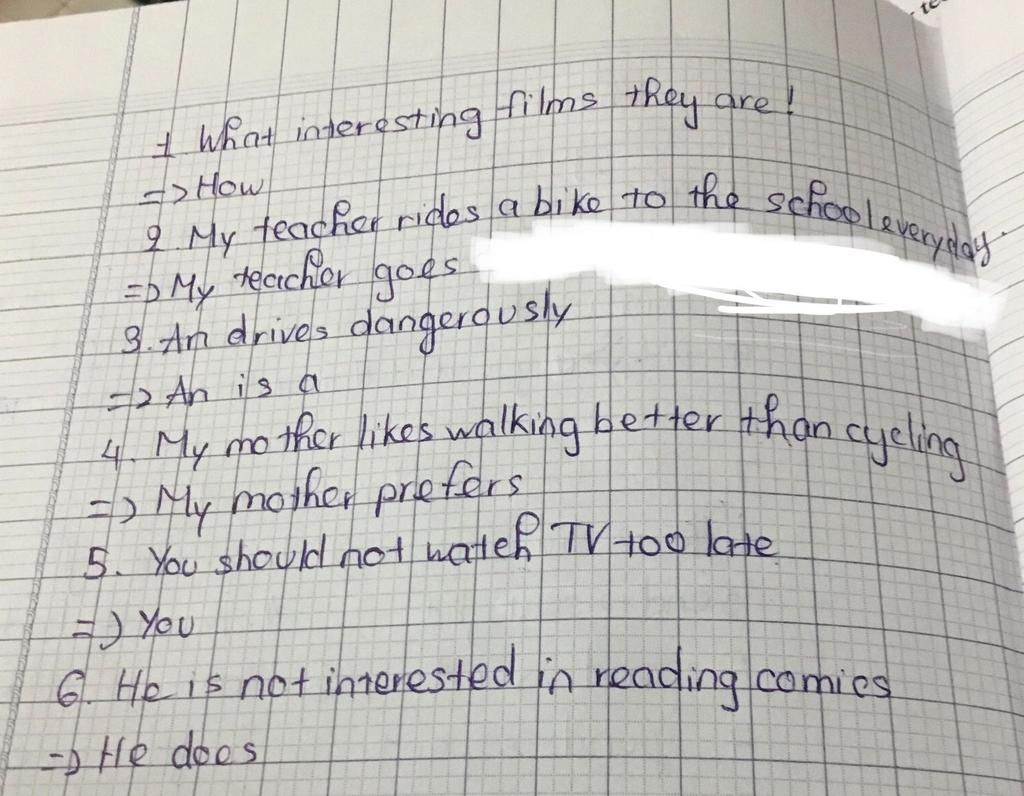 1 What interesting films they are!
=> How
2. My teacher rides a bike to the school everyday.
=> My teacher goes
3. An drives dangerously
=> An is a
4. My mother likes walking better than cycling
=> My mother prefers
5. You should not watch TV too late
=> You
6. He is not interested in reading comics
=> He does